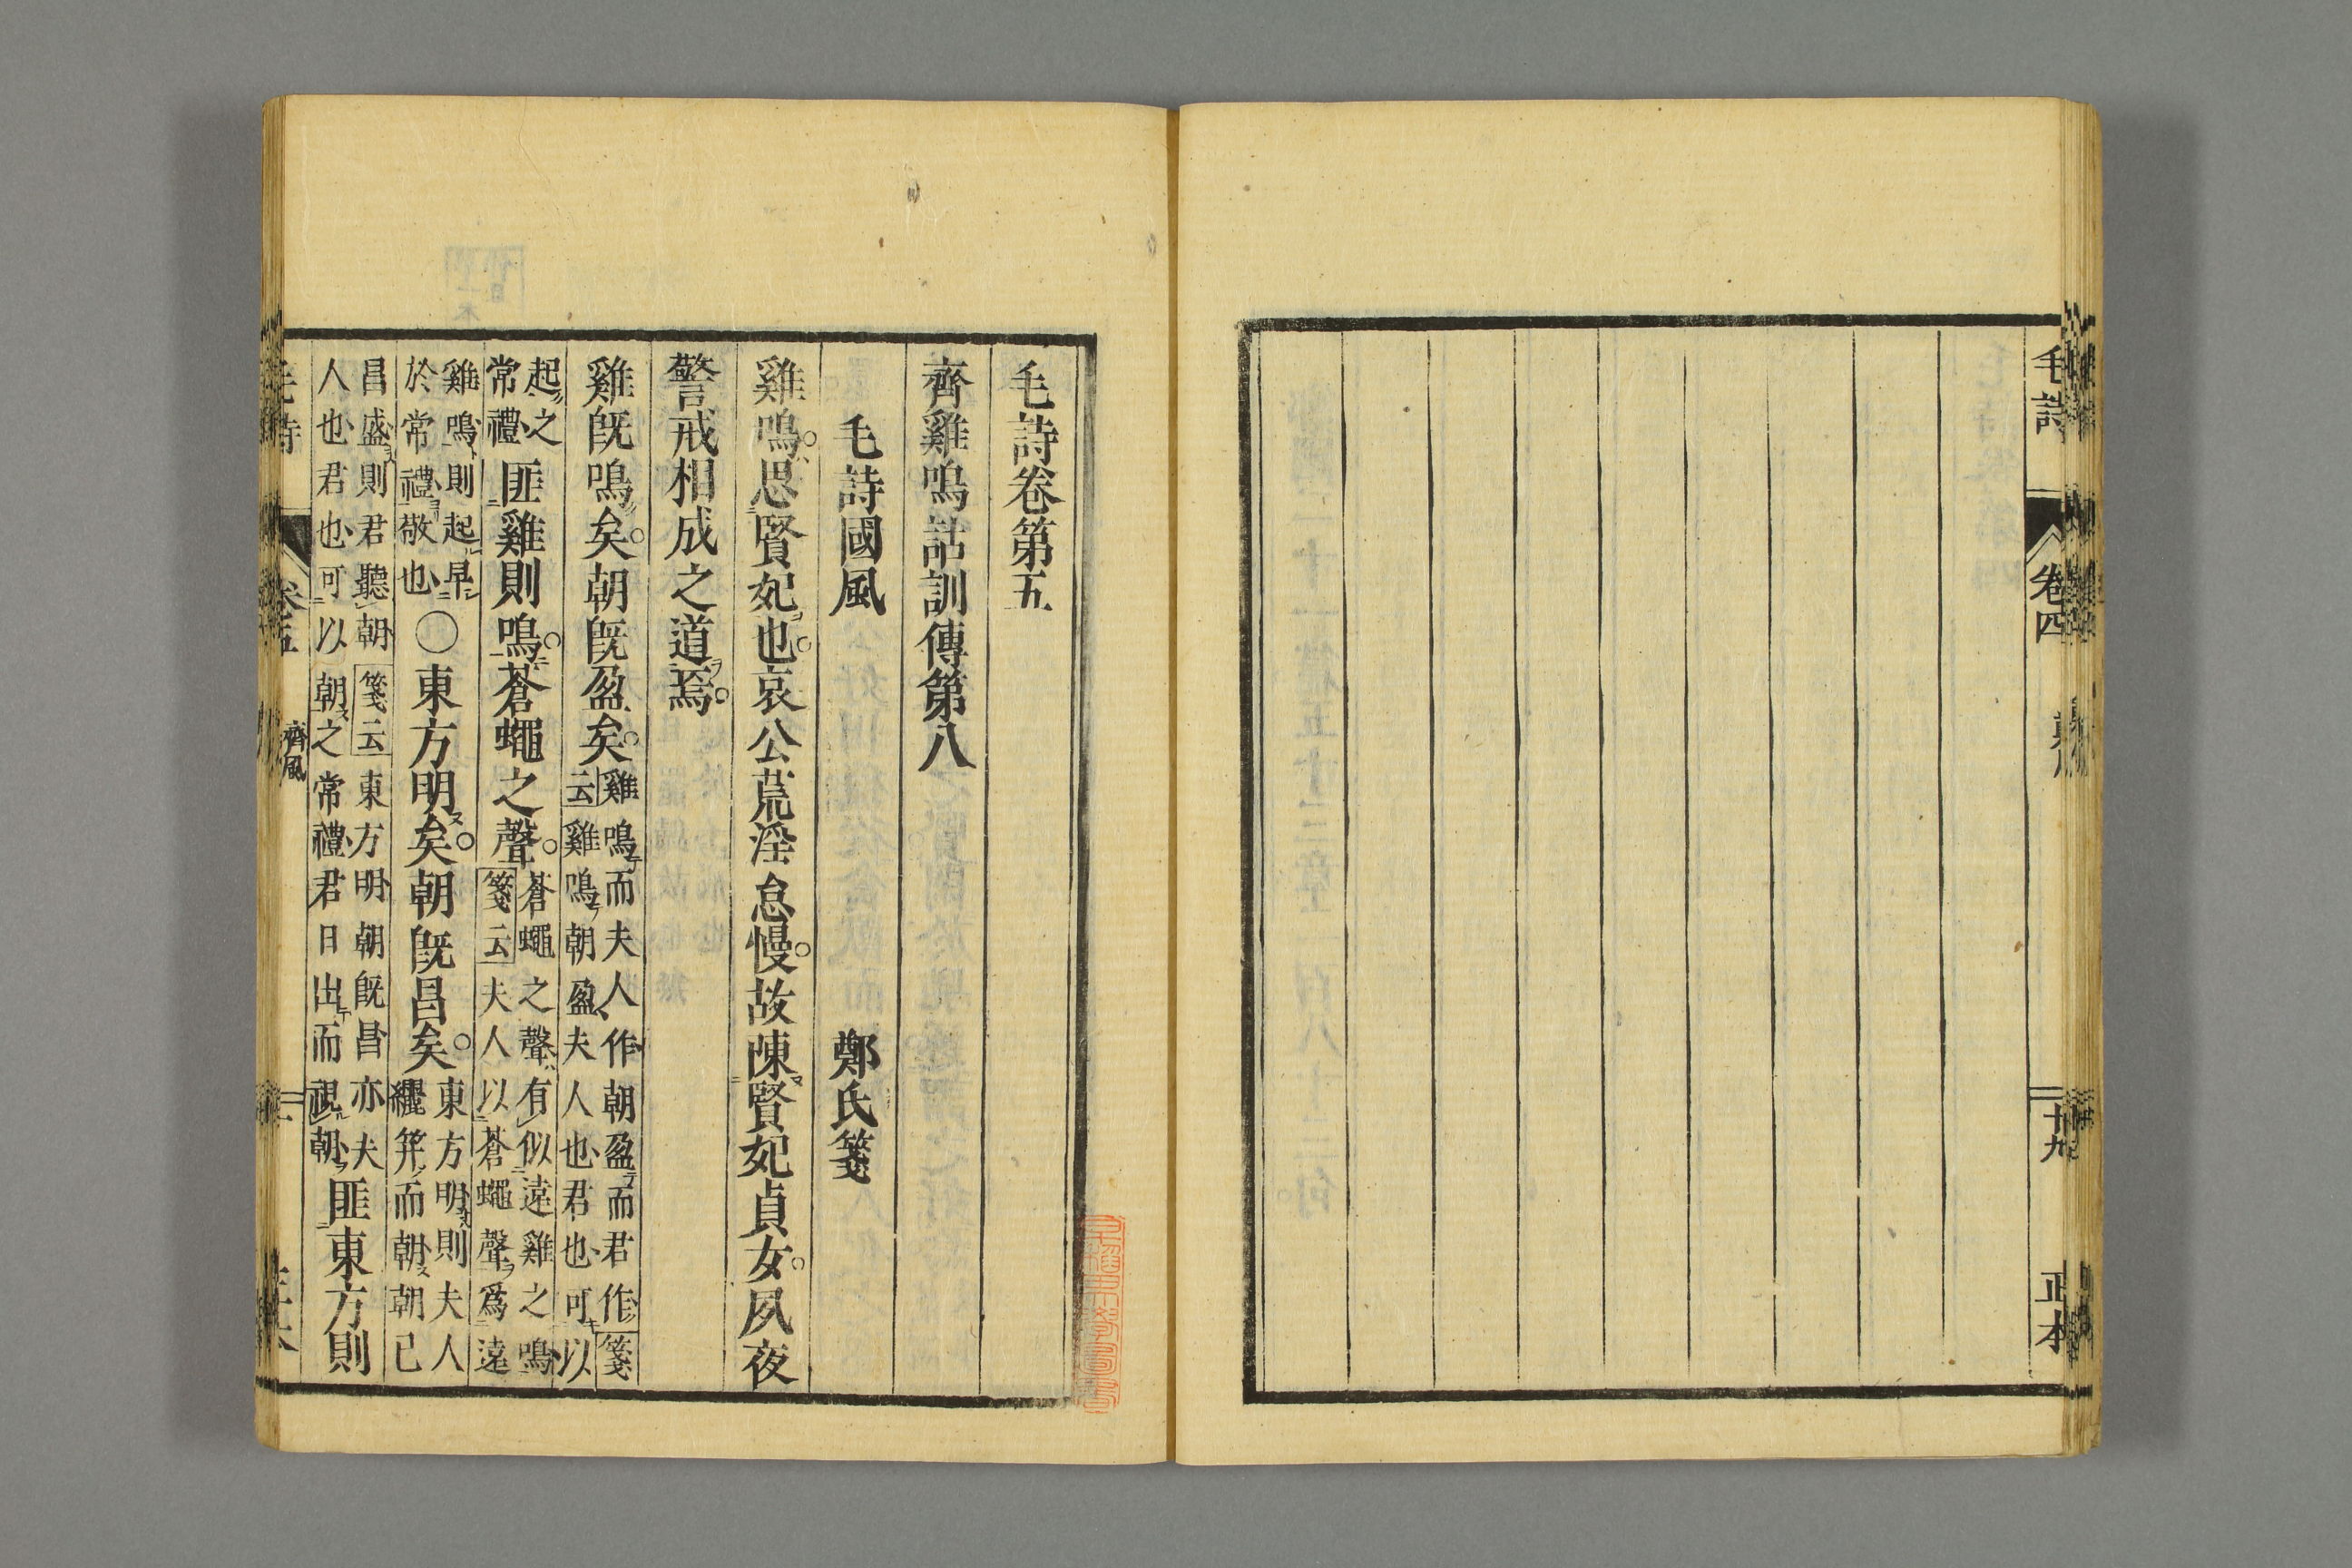 毛詩
卷四
十九
正本
毛詩卷第五
齊雞鳴詁訓傳第八
毛詩國風
鄭氏箋
雞鳴思賢妃也哀公荒淫怠慢故陳賢妃貞女夙夜
警戒相成之道焉
雞既鳴矣朝既盈矣
雞鳴而夫人作朝盈而君作箋
云雞鳴朝盈夫人也君也可以
起之
常禮
匪雞則鳴蒼蠅之聲
蒼蠅之聲有似遠雞之鳴
箋云夫人以蒼蠅聲爲遠
雞鳴則起早
於常禮敬也
〇東方明矣朝既昌矣
東方明則夫人
纚笄而朝朝已
昌盛則君聽朝箋云東方明朝既昌亦夫
人也君也可以朝之常禮君日出而視朝
匪東方則
齊風